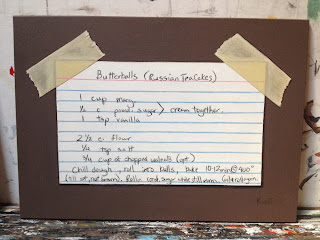 Butterballs (Russian Tea Cakes)
1 cup marg.
½ c. powd. sugar > cream together.
1 tsp vanilla
2 ¼ c. flour
¼ tsp salt
¾ cup of chopped walnuts (opt.)
Chill dough, roll into balls, bake 10-12min@400°
(till set, not brown). Roll in conf. sugar while still warm. Cool & roll again.